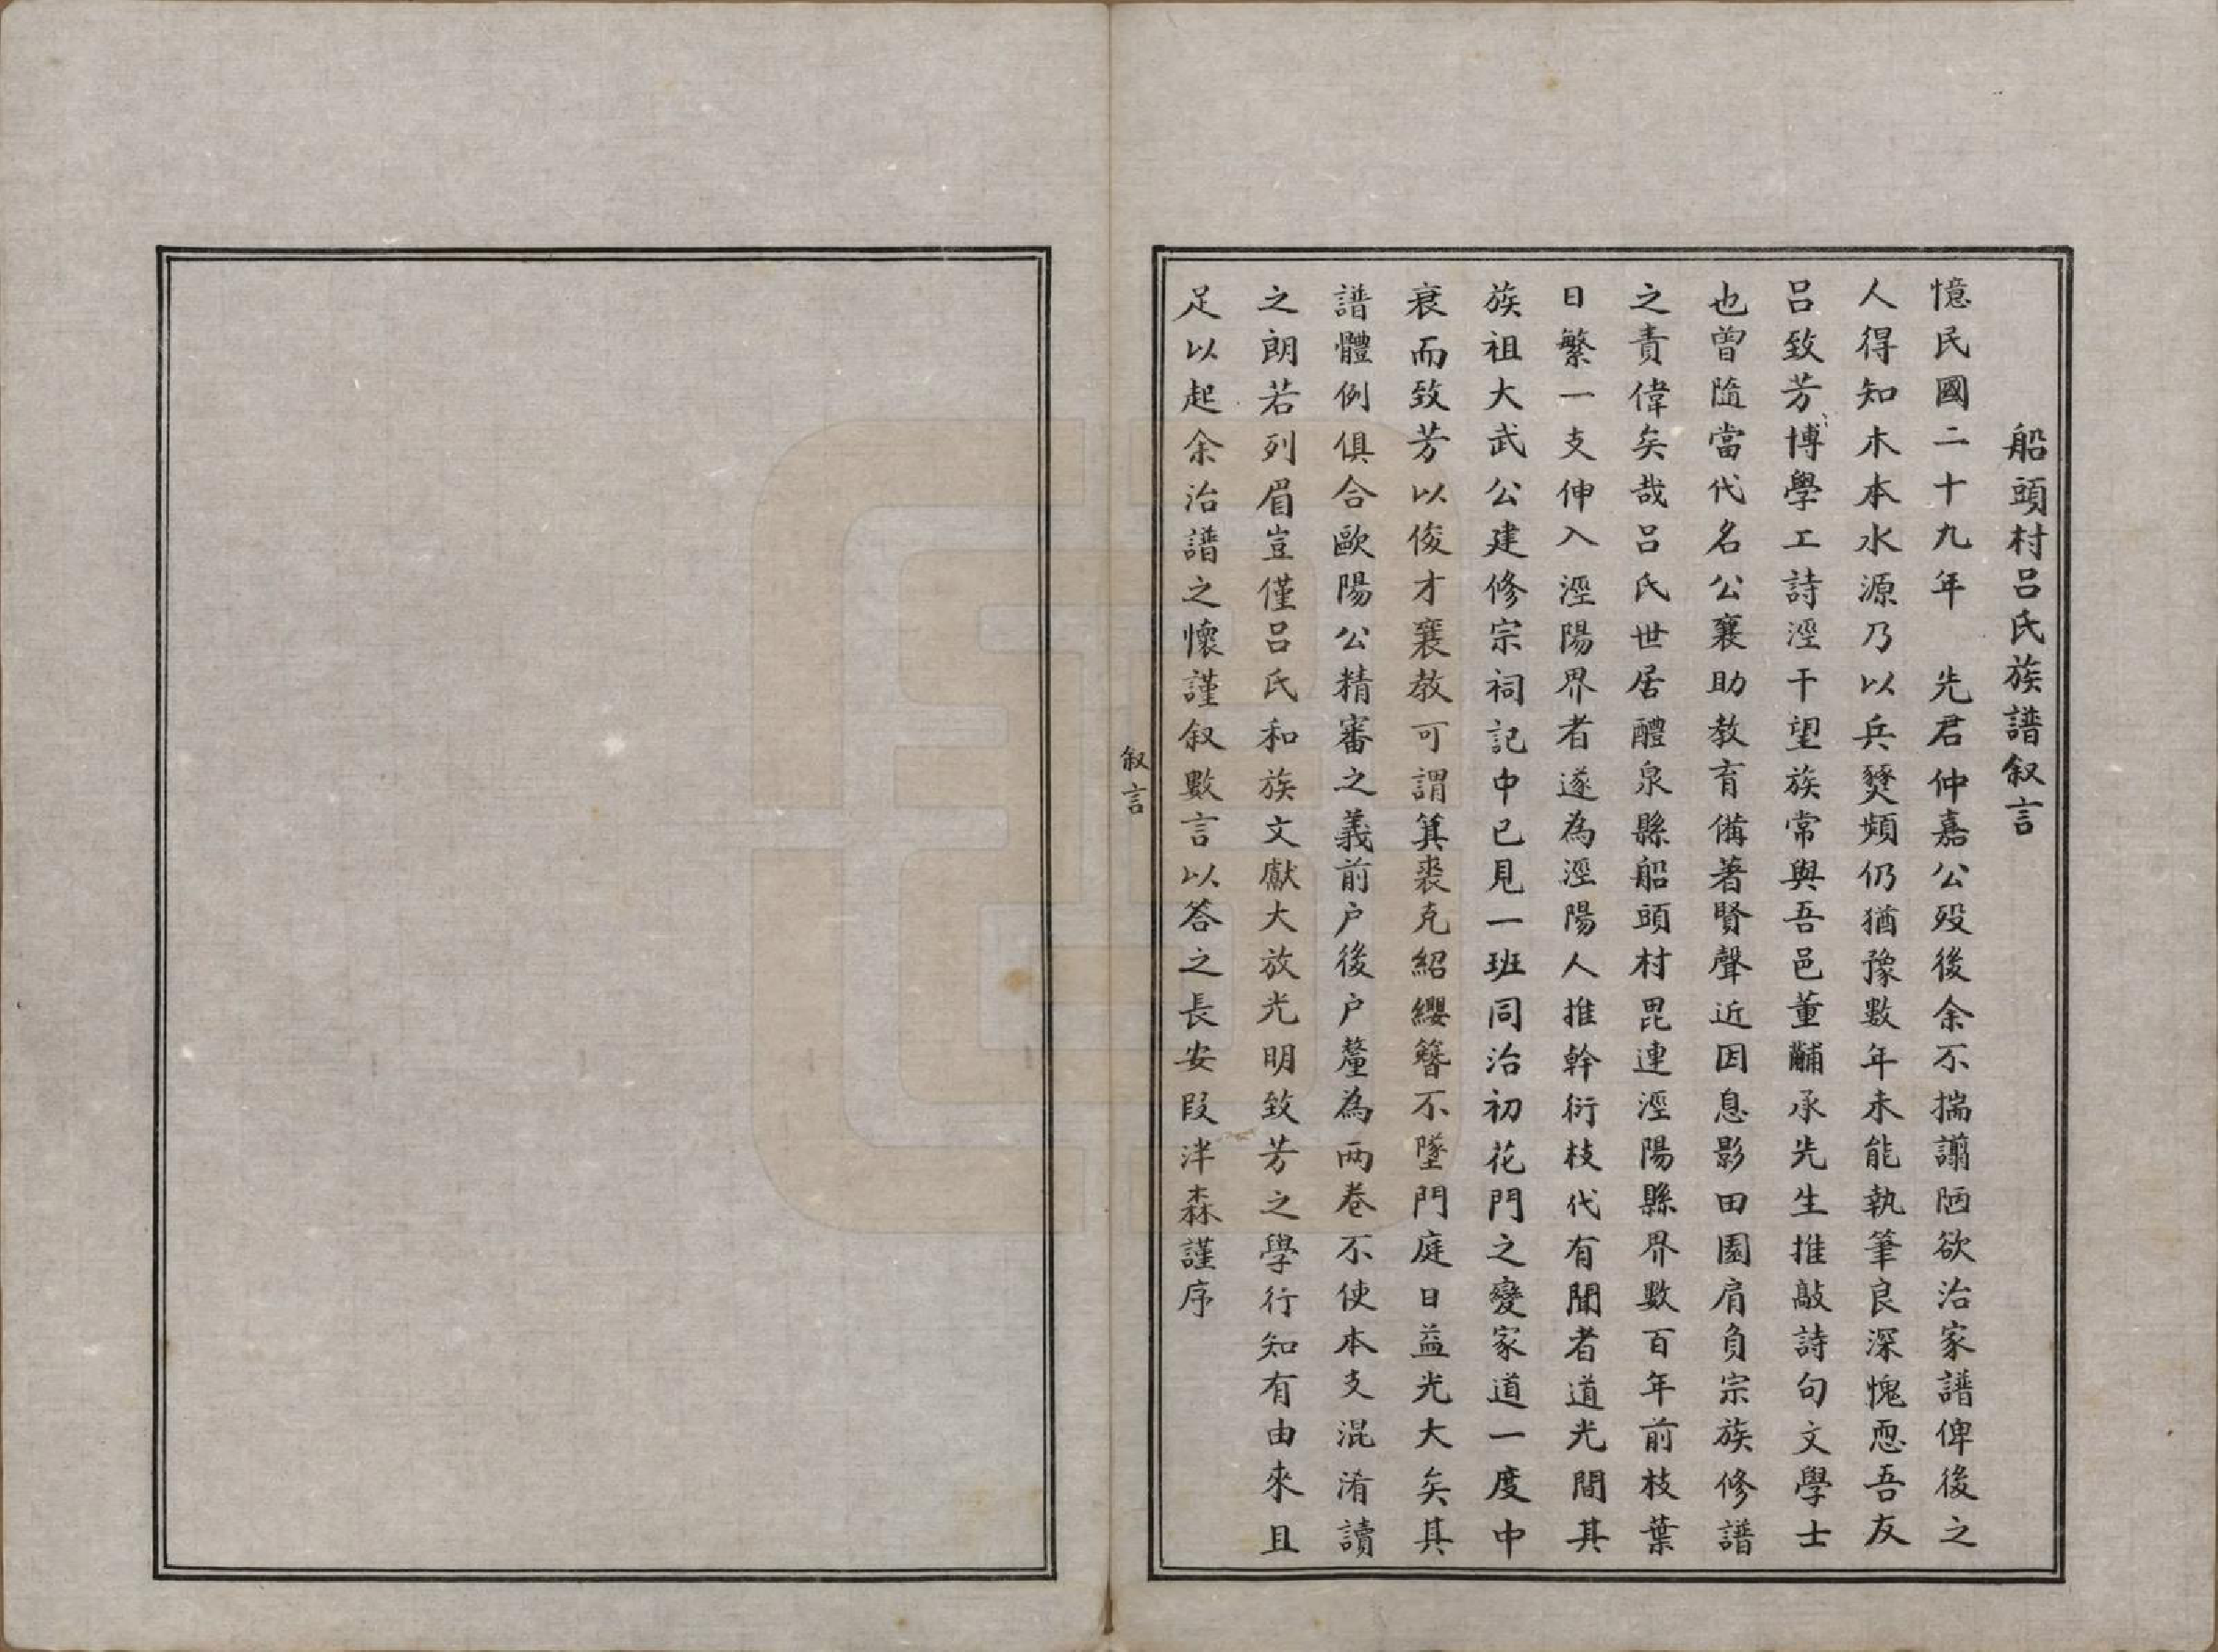 船頭村呂氏族譜叙言
憶民國二十九年　先君仲嘉公歿後余不揣譾陋欲治家譜俾後之
人得知木本水源乃以兵燹頻仍猶豫數年未能執筆良深愧恧吾友
呂致芳博學工詩涇干望族常與吾邑董黼承先生推敲詩句文學士
也曾隨當代名公襄助教育備著賢聲近因息影田園肩負宗族修譜
之責偉矣哉呂氏世居醴泉縣船頭村毘連涇陽縣界數百年前枝葉
日繁一支伸入涇陽界者遂為涇陽人推幹衍枝代有聞者道光間其
族祖大武公建修宗祠記中已見一班同治初花門之變家道一度中
衰而致芳以俊才襄教可謂箕裘克紹纓簪不墜門庭日益光大矣其
譜體例俱合歐陽公精審之義前户後户釐為兩卷不使本支混淆讀
之朗若列眉豈僅呂氏和族文獻大放光明致芳之學行知有由來且
足以起余治譜之懷謹叙數言以答之長安段泮森謹序
叙言